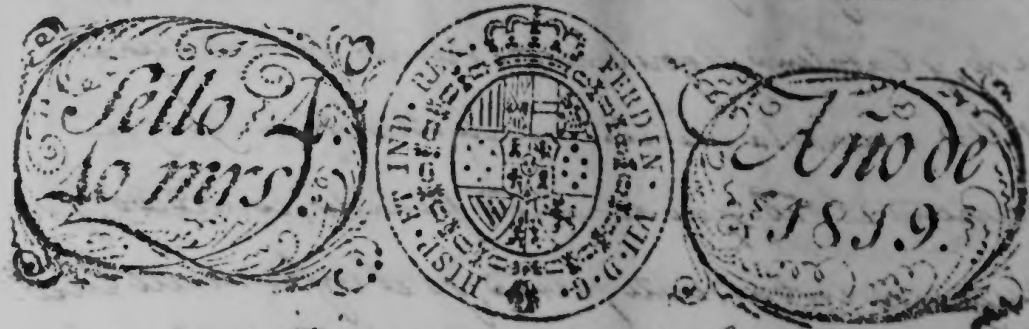 Sello 4.
40 mrs.
FERDIN. VII. D. G. HISP. ET IND. R.
Año de
1819.